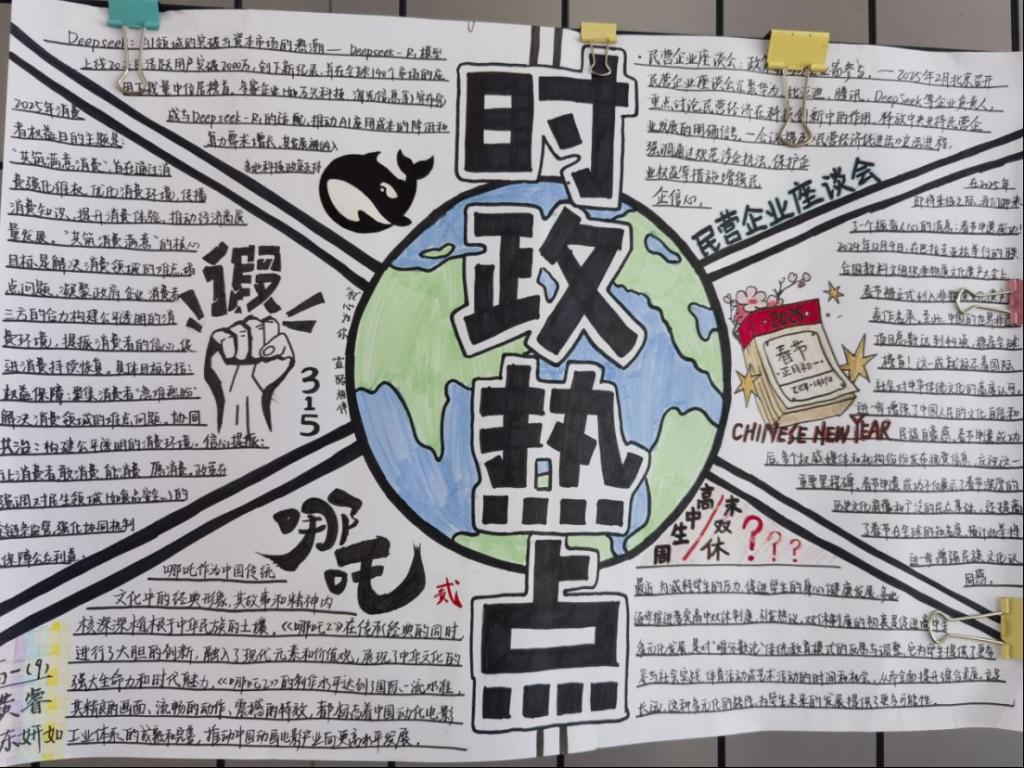 时政热点
Deepseek:AI领域的突破与资本市场的热潮— Deepseek-R1模型
上线20日活跃用户突破 万,创下新纪录,并在全球140个市场的应
用下载量中位居榜首,多家企业(
成与Deepseek-R1的适配,推动AI应用成本的降低和
算力需求增长,其发展被纳入
多地科技政策支持
2025年消费
者权益日的主题是:
“共筑满意消费”,旨在通过消
费强化维权,优化消费环境,传播
消费知识,提升消费体验,推动经济高质
量发展。“共筑消费满意”的核心
目标是解决消费领域的难点堵
点问题,凝聚政府企业消费者
三方的合力构建公平透明的消
费环境,提振消费者的信心,促
进消费持续恢复。具体目标包括:
权益保障:聚焦消费者“急难愁盼”
解决消费领域的难点问题。协同
共治:构建公平透明的消费环境。信心提振:
让消费者敢消费、能消费、愿消费。政策在
强调对民生领域
全链条监管,强化协同机制
保障公众利益。
假
315
·民营企业座谈会:政策 参与。——2025年2月北京召开
民营企业座谈会汇聚华为、比亚迪、腾讯、DeepSeek等企业负责人,
重点讨论民营经济在科技创新中的作用,释放中央支持民营企
业发展的明确信号。一会议提 民营经济促进法的立法进程,
强调通过规范涉企执法、保护企
业权益等措施增强民
企信心。
民营企业座谈会
在2025年
即将来临之际,我们迎来
了个振奋人心的消息:春节申遗成功!
2024年12月4日,在巴拉圭举行的联
合国教科文组织
春节被正式列入
表作名录,至此,中国的
项目总数达到44项,稳居全球
榜首!这一成就标志着国际
社会对中华传统文化的高度认可,
进一步增强了中国人民的文化自信和
民族自豪感。春节申遗成功
后,多个权威媒体和机构纷纷发布祝贺信息,庆祝这一
重要里程碑。春节申遗成功不仅展示了春节深厚的
历史文化底蕴和广泛的民众基础,还提高
了春节在全球的知名度,
进一步增强民族文化认
同感。
2025
春节
正月初一
CHINESE NEW YEAR
哪吒
贰
哪吒作为中国传统
文化中的经典形象,其故事和精神内
核深深植根于中华民族的土壤,《哪吒2》在传承经典的同时,
进行了大胆的创新,融入了现代元素和价值观,展现了中华文化的
强大生命力和时代魅力,《哪吒2》的制作水平达到了国际一流水准,
其精良的画面、流畅的动作、震撼的特效,都标志着中国动化电影
工业体系的成熟和完善,推动中国动画电影产业向更高水平发展。
高一(9)
睿
妍如
高中生/周末双休???
最近,为减轻学生的压力,促进学生的身心健康发展,多地
逐步推进者实高中双休制度,引发热议。双休制度的初衷是促进学生
多元化发展,是对“唯分数论”传统教育模式的反思与调整,它为学生提供了更多
参与社会实践、体育活动或艺术活动的时间和机会,从而全面提升综合素质。
长远,这种多元化的能性,为学生未来的发展提供了更多可能性。